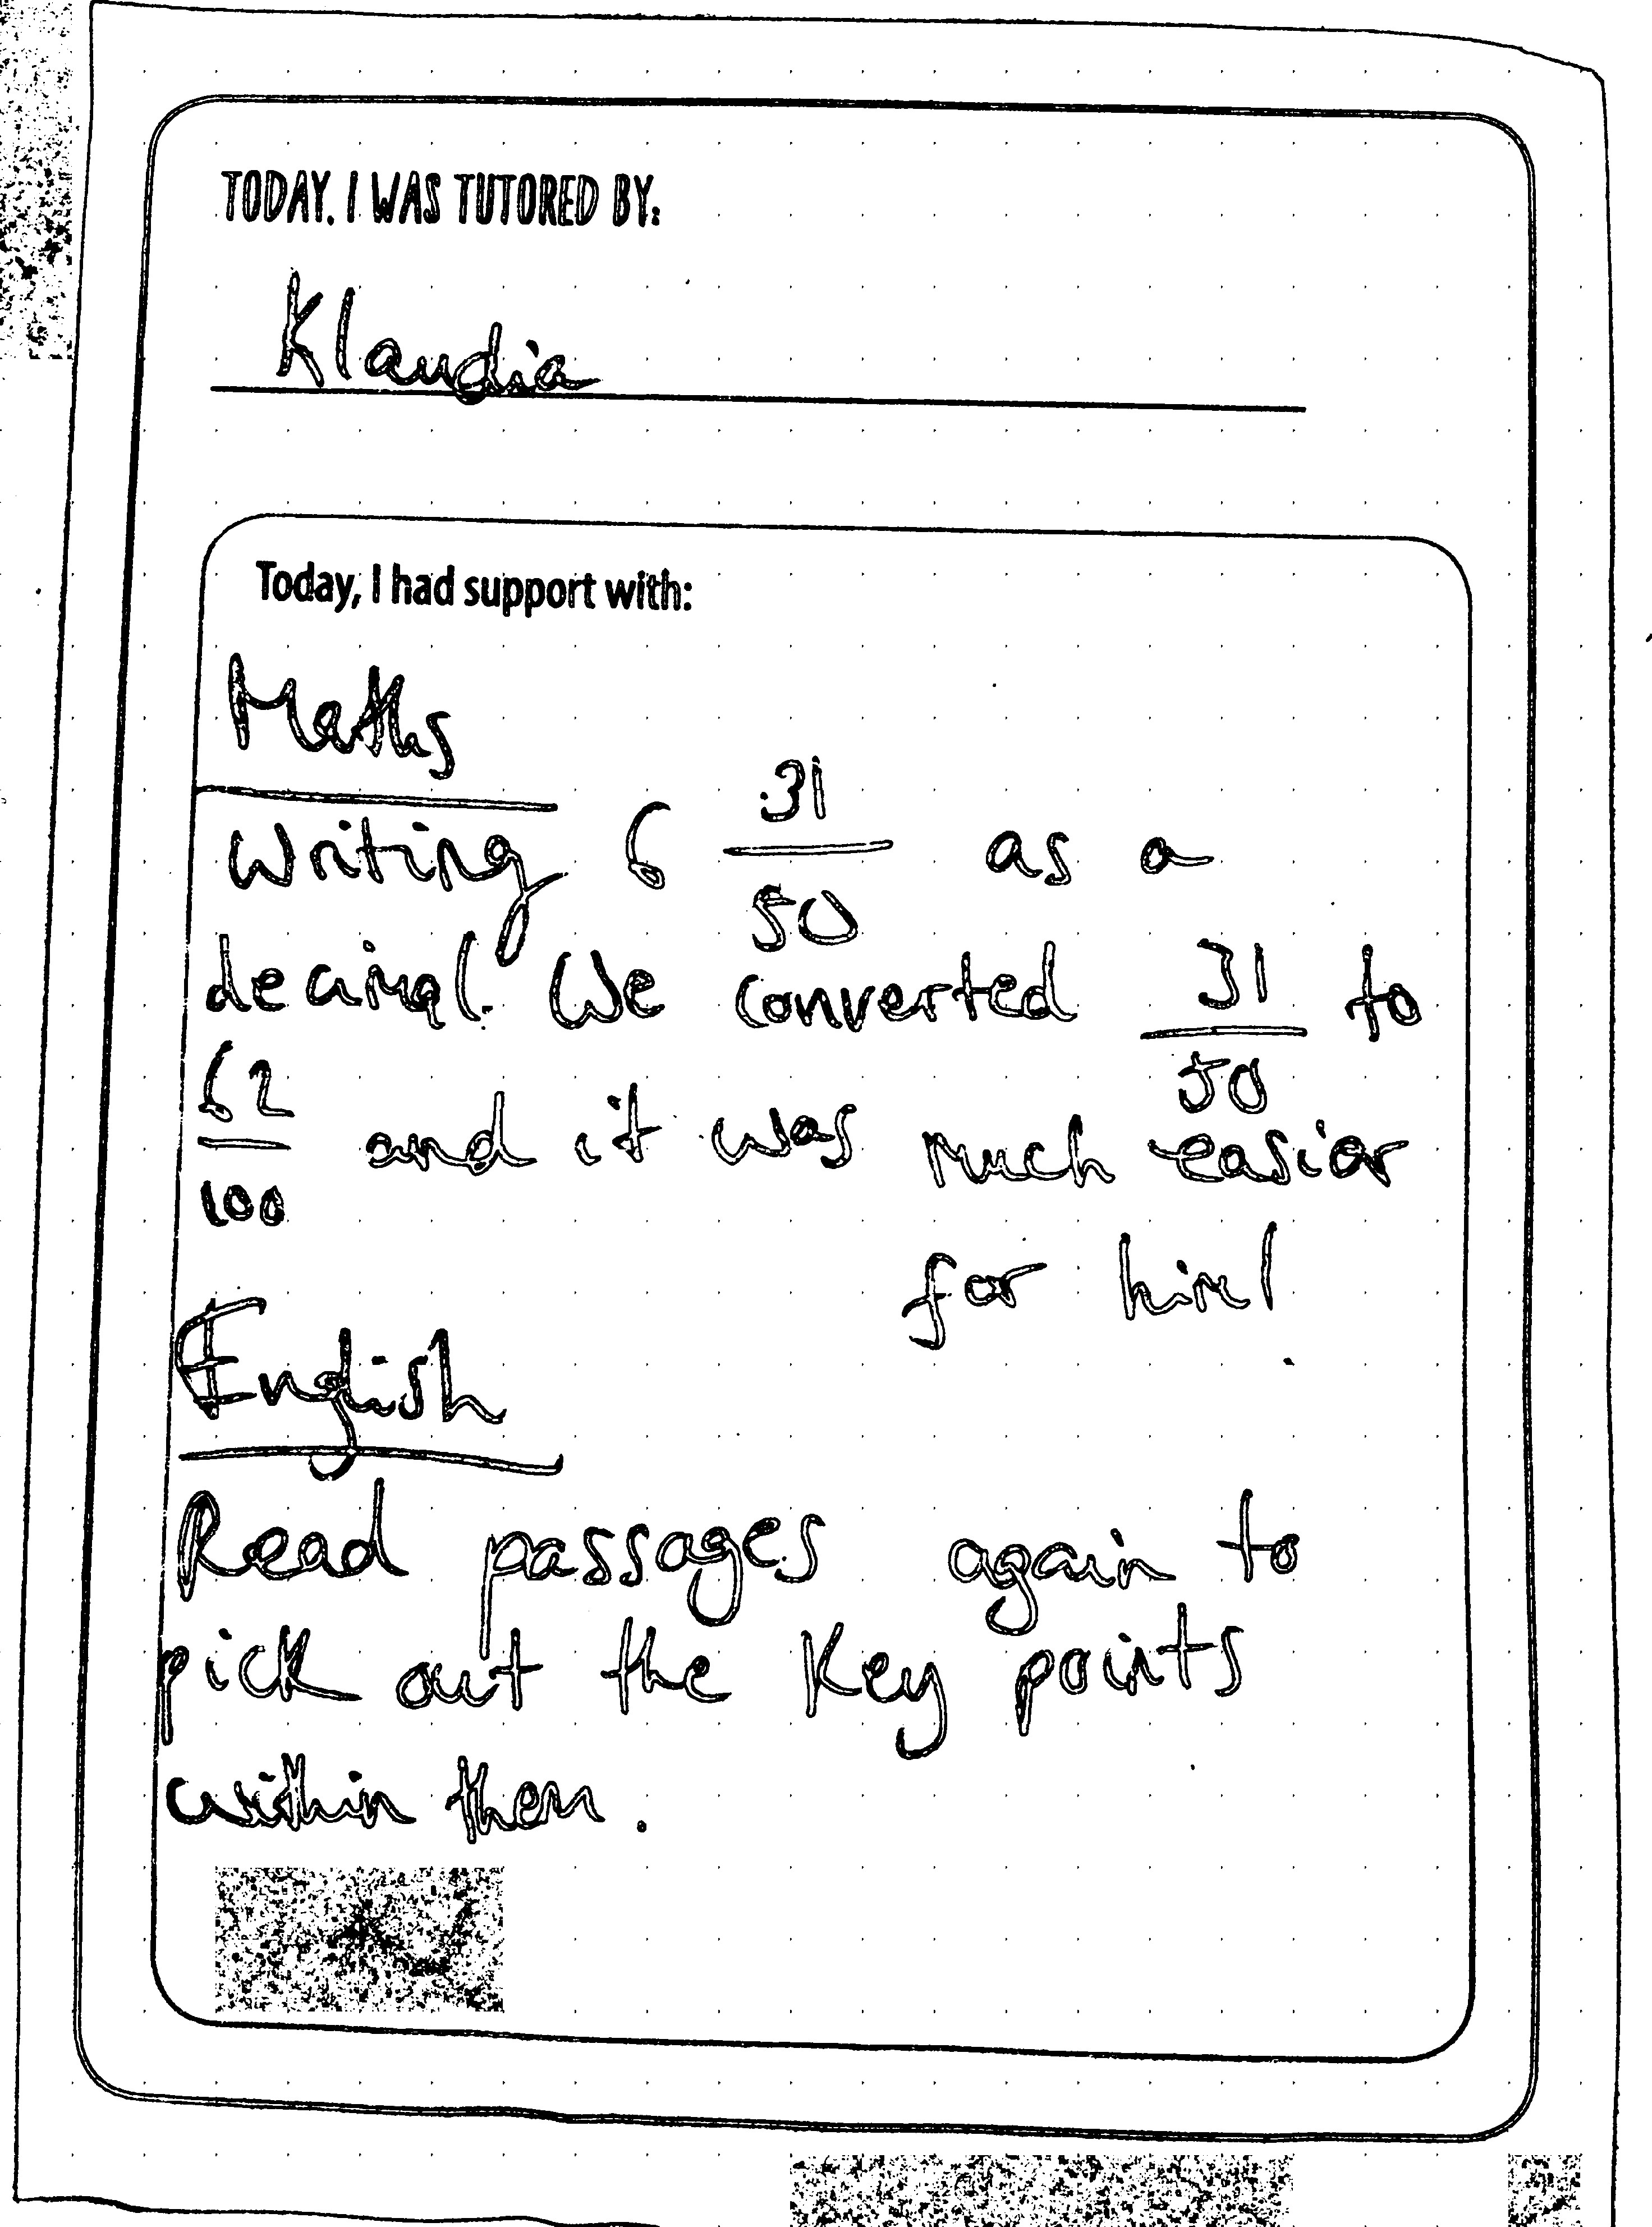 TODAY, I WAS TUTORED BY:
Klaudia
Today, I had support with:
Maths
Writing 6 31/50 as a
decimal. We converted 31/50 to
62/100 and it was much easier
for him!
English
Read passages again to
pick out the key points
within them.